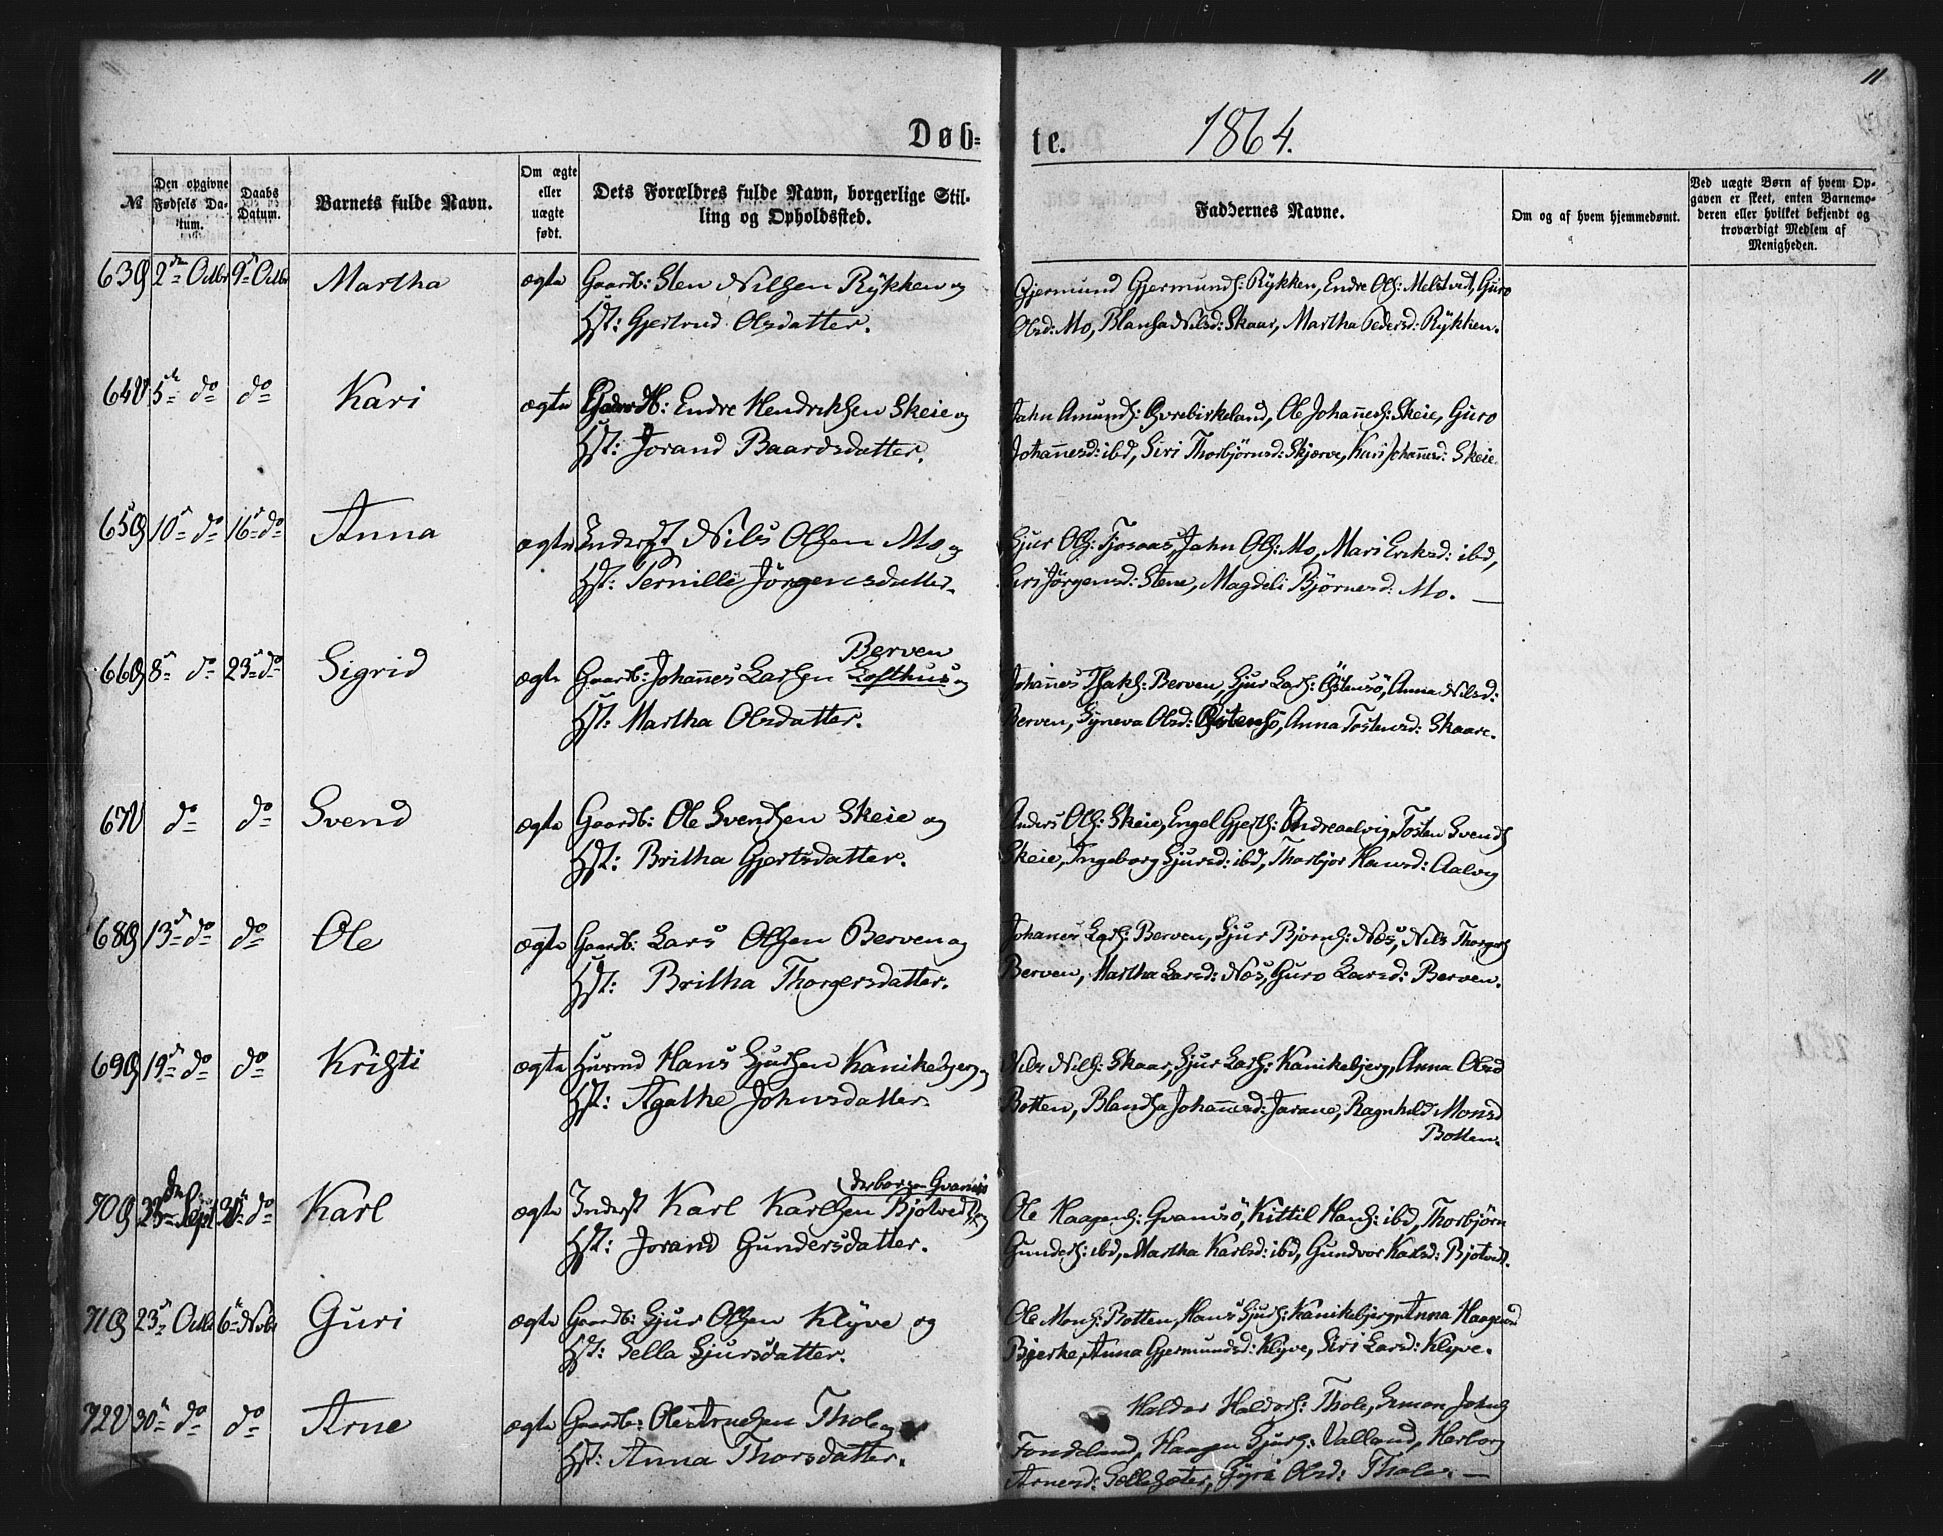 11
Døb=
te.
1864.
№
Den opgivne Fødsels Datum.
Daabs Datum.
Barnets fulde Navn.
Om ægte eller uægte født.
Dets Forældres fulde Navn, borgerlige Stilling og Opholdssted.
Faddernes Navne.
Om og af hvem hjemmedøbt.
Ved uægte Børn af hvem Opgaven er skeet, enten Barnemoderen eller hvilket bekjendt og troværdigt Medlem af Menigheden.
63 2den Octbr 9de Octbr Martha ægte Gaardb: Sten Nilsen Rykken og
Hst: Gjertrud Olsdatter.
Gjermund Gjermunds: Rykken, Endre Ols: Melstved, Guro
Olsd: Mo, Blansa Nilsd: Skaar, Martha Pedersd: Rykken.
64 5te do do Kari ægte Gaardb: Endre Hendriksen Skeie og
Hst: Jorand Baardsdatter.
Jahn Amunds: Øvrebirkeland, Ole Johañes: Skeie, Guro
Johañesd: ibd, Siri Thorbjörnsd: Skjærve, Kari Johañesd: Skeie
65 10de do 16de do Anna ægte Inderst Nils Olsen Mo og
Hst: Pernille Jörgensdatter.
Sjur Ols: Tjosaas, Jahn Ols: Mo, Mari Eriksd: ibd,
Siri Jörgensd: Stene, Magdeli Björnesd: Mo. —
66 8de do 23de do Sigrid ægte Gaardb: Johañes Larsen Lofthus og
Berven
Hst: Martha Olsdatter.
Johañes Isaks: Berven, Sjur Lars: Östensö, Anna Nilsd:
Berven, Syneva Olsd: Östensö, Anna Tostensd: Skaare.
67 do do Svend ægte Gaardb: Ole Svendsen Skeie og
Hst: Britha Gjertsdatter.
Anders Ols: Skeie, Engel Gjerts: Indreaalvig, Tosten Svends
Skeie, Ingeborg Sjursd: ibd, Thorbjor Hansd: Aalvig
68 13de do do Ole ægte Gaardb: Lars Olsen Berven og
Hst: Britha Thorgersdatter.
Johanes Lars: Berven, Sjur Bjorns: Næs, Nils Thorgers
Berven, Martha Larsd: Næs, Guro Larsd: Berven.
69 19de do do Kristi ægte Husmd Hans Sjursen Kanikebjerg og
Hst: Agathe Johnsdatter.
Nils Nils: Skaar, Sjur Lars: Kanikebjerg, Anna Olsd
Botten, Blandsa Johañesd: Jarane, Ragnhild Monsd
Botten.
70 23de Sept 30te do Karl ægte Inderst Karl Karlsen Bjotvedt og
Hst: Jorand Gundersdatter.
Ole Haagens: Qvamsö, Kittil Hans: ibd, Thorbjörn
Gunders: ibd, Martha Karlsd: ibd, Gundvor Karlsd: Bjotvedt.
71 23de Octbr 6te Novbr Guri ægte Gaardb: Sjur Olsen Klyve og
Hst: Sella Sjursdatter.
Ole Mons: Botten, Hans Sjurs: Kanikebjerg, Anna Haagensd
Bjerke, Anna Gjermundsd: Klyve, Siri Larsd: Klyve.
72 30te do do Arne ægte Gaardb: Ole Arnesen Thole og
Hst: Anna Thorsdatter.
Haldor Haldors: Thole, Simon Johns
Fondeland, Haagen Sjurs: Valland, Herborg
Arnesd: Sellesæter, Gyri Olsd: Thole. —